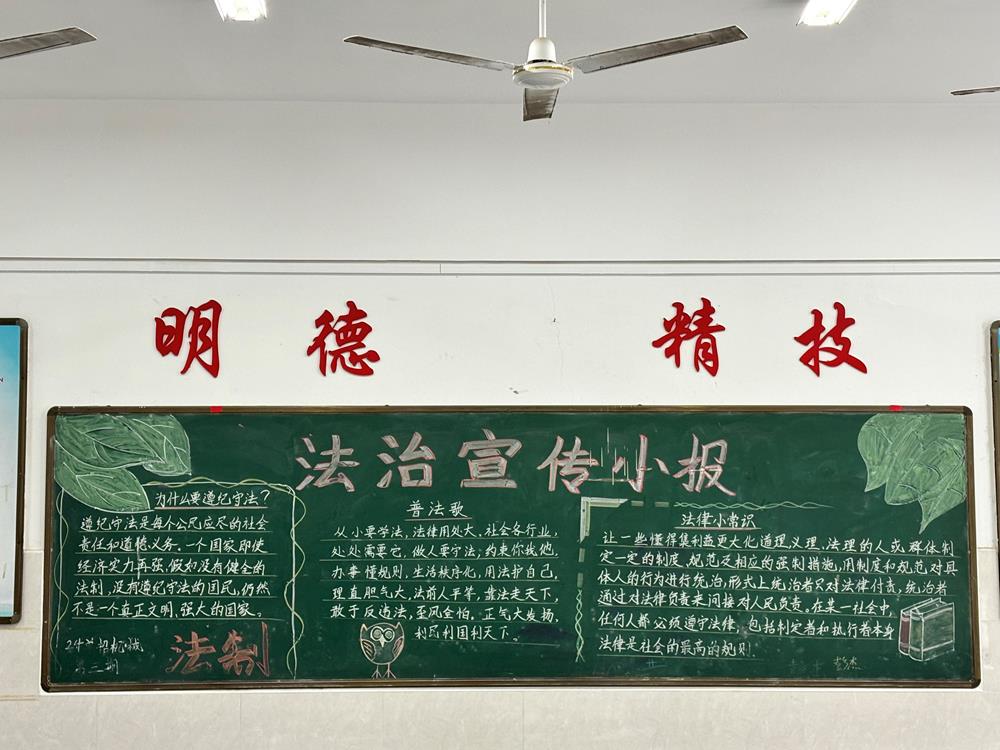 明德 精技
法治宣传小报
为什么要遵纪守法?
遵纪守法是每个公民应尽的社会
责任和道德义务。一个国家即使
经济实力再强,假如没有健全的
法制,没有遵纪守法的国民,仍然
不是一个真正文明、强大的国家。
第二期
法制
普法歌
从小要学法,法律用处大,社会各行业,
处处需要它,做人要守法;约束你我他,
办事懂规则,生活秩序化,用法护自己,
理直胆气大,法前人平等,靠法走天下,
敢于反违法,歪风全怕,正气大发扬,
利民利国利天下。
法律小常识
让一些懂得集利益更大化道理义理,法理的人或群体制
定一定的制度,规范及相应的强制措施,用制度和规范对具
体人的行为进行统治,形式上统治者只对法律付责,统治者
通过对法律负责来间接对人民负责。在某一社会中,
任何人都必须遵守法律,包括制定者和执行者本身
法律是社会的最高的规则